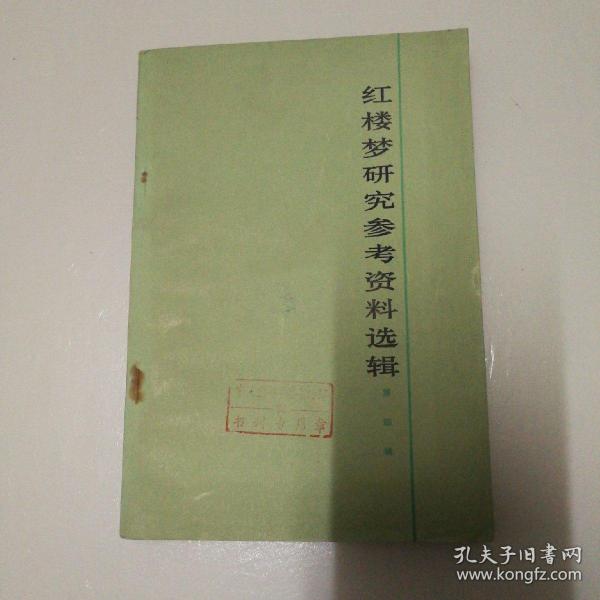 红楼梦研究参考资料选辑
书刊专用章
孔夫子旧书网
www.kongfz.com